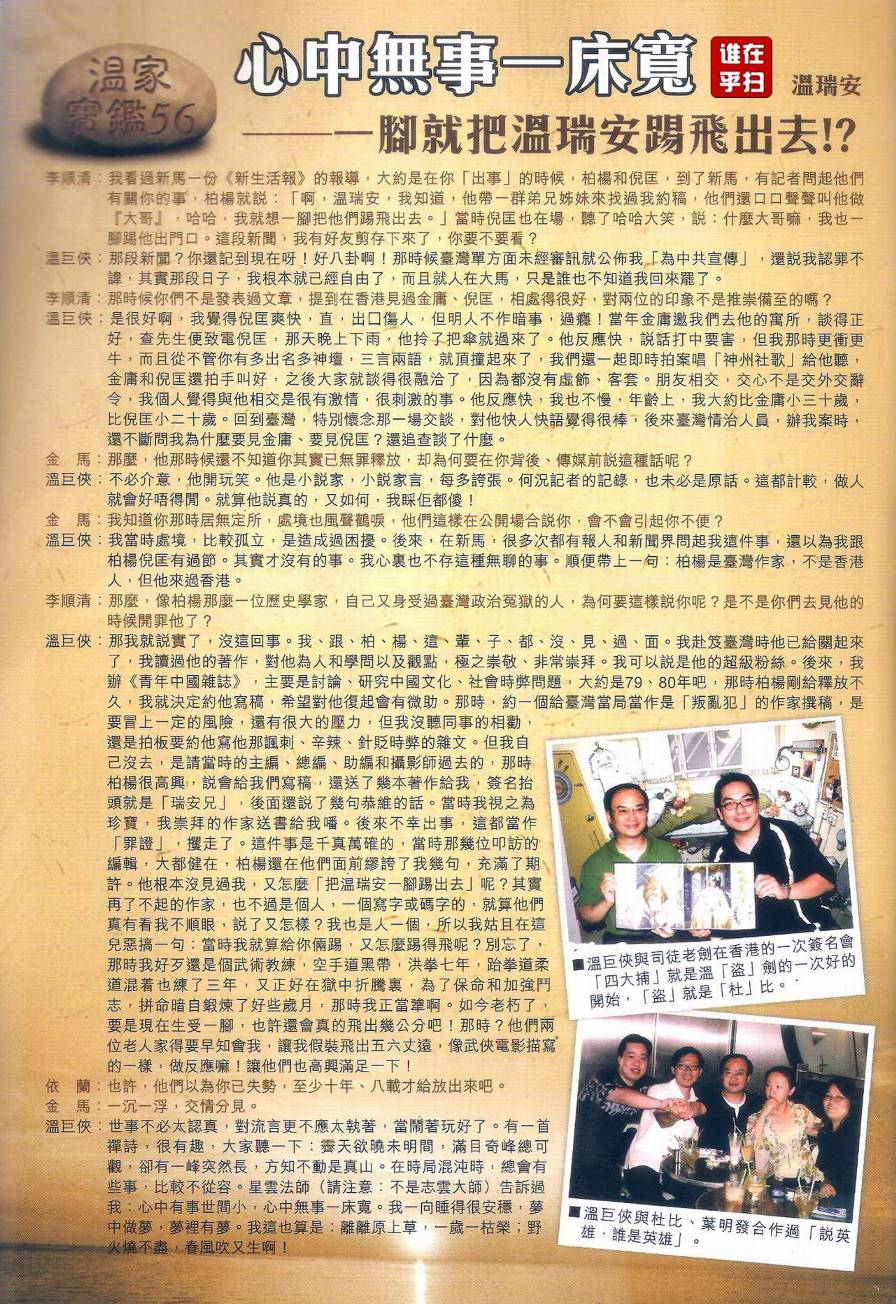 溫家
寶鑑56
心中無事一床寬
谁在
乎扫
溫瑞安
———一腳就把溫瑞安踢飛出去!?
李順清：我看過新馬一份《新生活報》的報導，大約是在你「出事」的時候，柏楊和倪匡，到了新馬，有記者問起他們
有關你的事，柏楊就說：「啊，溫瑞安，我知道，他帶一群弟兄姊妹來找過我約稿，他們還口口聲聲叫他做
『大哥』，哈哈，我就想一腳把他們踢飛出去。」當時倪匡也在場，聽了哈哈大笑，說：什麼大哥嘛，我也一
腳踢他出門口。這段新聞，我有好友剪存下來了，你要不要看？
溫巨俠：那段新聞？你還記到現在呀！好八卦啊！那時候臺灣單方面未經審訊就公佈我「為中共宣傳」，還說我認罪不
諱，其實那段日子，我根本就已經自由了，而且就人在大馬，只是誰也不知道我回來罷了。
李順清：那時候你們不是發表過文章，提到在香港見過金庸、倪匡，相處得很好，對兩位的印象不是推崇備至的嗎？
溫巨俠：是很好啊，我覺得倪匡爽快，直，出口傷人，但明人不作暗事，過癮！當年金庸邀我們去他的寓所，談得正
好，查先生便致電倪匡，那天晚上下雨，他拎了把傘就過來了。他反應快，說話打中要害，但我那時更衝更
牛，而且從不管你有多出名多神壇，三言兩語，就頂撞起來了，我們還一起即時拍案唱「神州社歌」給他聽，
金庸和倪匡還拍手叫好，之後大家就談得很融洽了，因為都沒有虛飾、客套。朋友相交，交心不是交外交辭
令，我個人覺得與他相交是很有激情，很刺激的事。他反應快，我也不慢，年齡上，我大約比金庸小三十歲，
比倪匡小二十歲。回到臺灣，特別懷念那一場交談，對他快人快語覺得很棒，後來臺灣情治人員，辦我案時，
還不斷問我為什麼要見金庸、要見倪匡？還追查談了什麼。
金　馬：那麼，他那時候還不知道你其實已無罪釋放，却為何要在你背後、傳媒前說這種話呢？
溫巨俠：不必介意，他開玩笑。他是小說家，小說家言，每多誇張。何況記者的記錄，也未必是原話。這都計較，做人
就會好唔得閒。就算他說真的，又如何，我睬佢都傻！
金　馬：我知道你那時居無定所，處境也風聲鶴唳，他們這樣在公開場合說你，會不會引起你不便？
溫巨俠：我當時處境，比較孤立，是造成過困擾。後來，在新馬，很多次都有報人和新聞界問起我這件事，還以為我跟
柏楊倪匡有過節。其實才沒有的事。我心裏也不存這種無聊的事。順便帶上一句：柏楊是臺灣作家，不是香港
人，但他來過香港。
李順清：那麼，像柏楊那麼一位歷史學家，自己又身受過臺灣政治冤獄的人，為何要這樣說你呢？是不是你們去見他的
時候開罪他了？
溫巨俠：那我就說實了，沒這回事。我、跟、柏、楊、這、輩、子、都、沒、見、過、面。我赴笈臺灣時他已給關起來
了，我讀過他的著作，對他為人和學問以及觀點，極之崇敬、非常崇拜。我可以說是他的超級粉絲。後來，我
辦《青年中國雜誌》，主要是討論、研究中國文化、社會時弊問題，大約是79、80年吧，那時柏楊剛給釋放不
久，我就決定約他寫稿，希望對他復起會有微助。那時，約一個給臺灣當局當作是「叛亂犯」的作家撰稿，是
要冒上一定的風險，還有很大的壓力，但我沒聽同事的相勸，
還是拍板要約他寫他那諷刺、辛辣、針貶時弊的雜文。但我自
己沒去，是請當時的主編、總編、助編和攝影師過去的，那時
柏楊很高興，說會給我們寫稿，還送了幾本著作給我，簽名抬
頭就是「瑞安兄」，後面還說了幾句恭維的話。當時我視之為
珍寶，我崇拜的作家送書給我噃。後來不幸出事，這都當作
「罪證」，攫走了。這件事是千真萬確的，當時那幾位叩訪的
編輯，大都健在，柏楊還在他們面前繆誇了我幾句，充滿了期
許。他根本沒見過我，又怎麼「把溫瑞安一腳踢出去」呢？其實
再了不起的作家，也不過是個人，一個寫字或碼字的，就算他們
真有看我不順眼，說了又怎樣？我也是人一個，所以我姑且在這
兒惡搞一句：當時我就算給你倆踢，又怎麼踢得飛呢？別忘了，
那時我好歹還是個武術教練，空手道黑帶，洪拳七年，跆拳道柔
道混着也練了三年，又正好在獄中折騰裏，為了保命和加強鬥
志，拼命暗自鍛煉了好些歲月，那時我正當犟啊。如今老朽了，
要是現在生受一腳，也許還會真的飛出幾公分吧！那時？他們兩
位老人家得要早知會我，讓我假裝飛出五六丈遠，像武俠電影描寫
的一樣，做反應嘛！讓他們也高興滿足一下！
依　蘭：也許，他們以為你已失勢，至少十年、八載才給放出來吧。
金　馬：一沉一浮，交情分見。
溫巨俠：世事不必太認真，對流言更不應太執著，當鬧著玩好了。有一首
禪詩，很有趣，大家聽一下：霽天欲曉未明間，滿目奇峰總可
觀，卻有一峰突然長，方知不動是真山。在時局混沌時，總會有
些事，比較不從容。星雲法師（請注意：不是志雲大師）告訴過
我：心中有事世間小，心中無事一床寬。我一向睡得很安穩，夢
中做夢，夢裡有夢。我這也算是：離離原上草，一歲一枯榮；野
火燒不盡，春風吹又生啊！
■溫巨俠與司徒老劍在香港的一次簽名會
「四大捕」就是溫「盜」劍的一次好的
開始，「盜」就是「杜」比。
■溫巨俠與杜比、葉明發合作過「說英
雄·誰是英雄」。